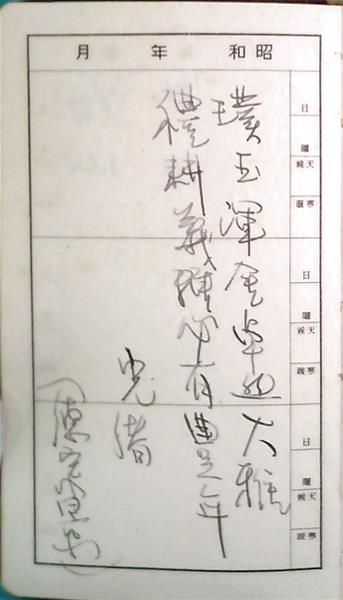 昭和 年 月
日 曜 天候 寒暖
日 曜 天候 寒暖
日 曜 天候 寒暖
璞玉渾金卓大雅
禮耕義種必有豐年
光緒